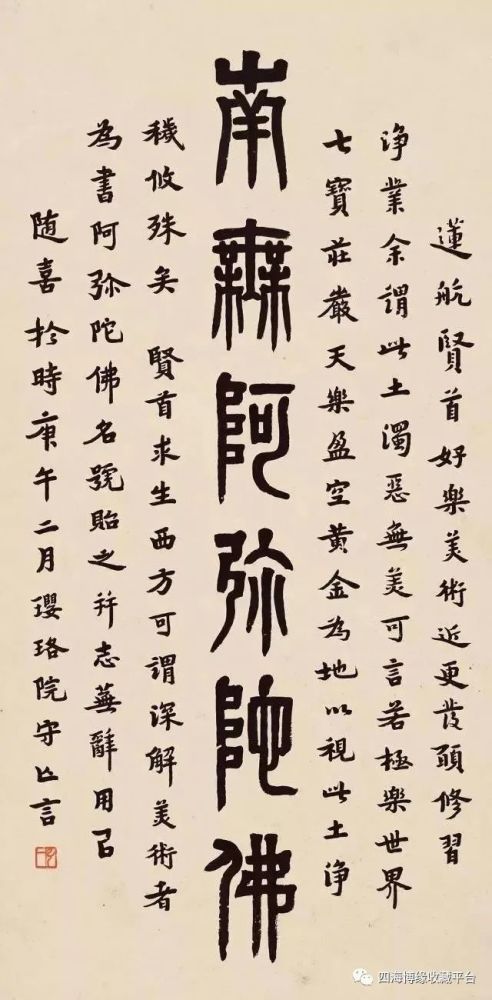 蓮航賢首好樂美術近更發願修習
淨業余謂此土濁惡無美可言若極樂世界
七寶莊嚴天樂盈空黃金為地以視此土淨
南無阿弥陀佛
穢攸殊矣 賢首求生西方可謂深解美術者
為書阿弥陀佛名號貽之并志蕪辭用召
随喜於時庚午二月瓔珞院守亡言
四海博缘收藏平台